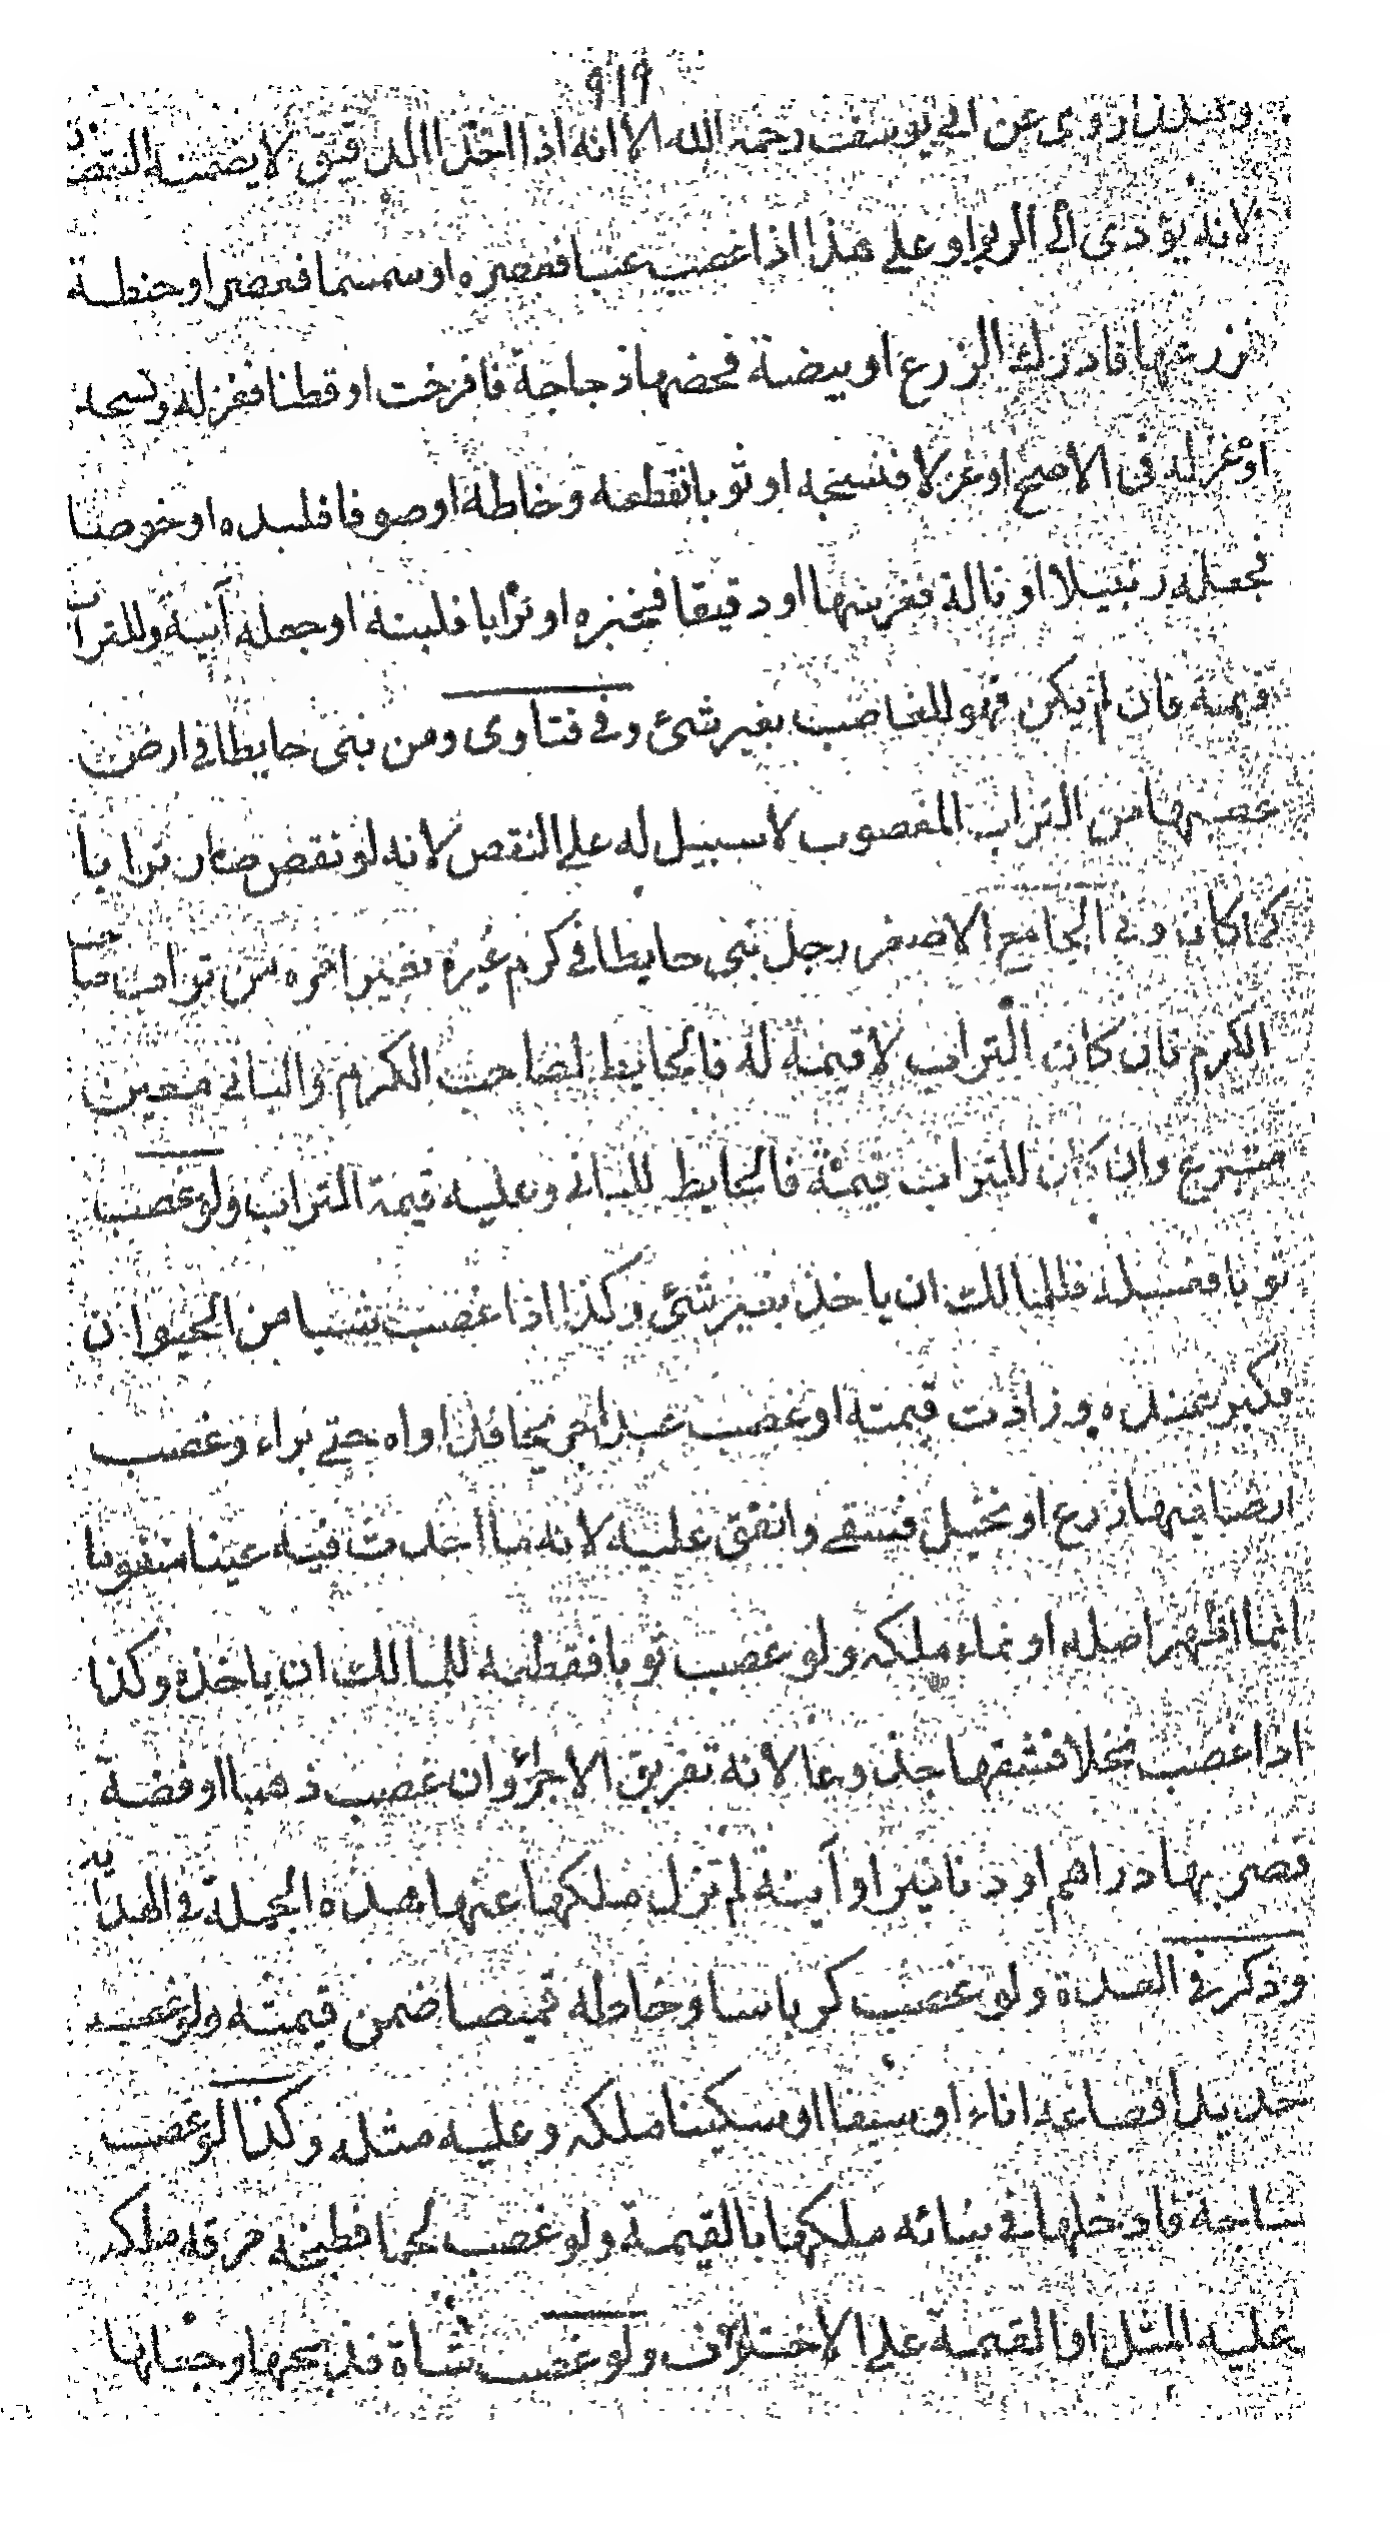 ٩١٩
وهكذا روى عن ابي يوسف رحمه الله الا انه اذا اخذ الدقيق لا يضمنه النقصان
لانه يؤدى الى الربوا وعلى هذا اذا غصب عنبا فعصره او سمسما فعصر او حنطة
فزرعها فادرك الزرع او بيضة فحضنها دجاجة فافرخت او قطنا فغزله ونسجه
او غزله فى الاصح او غزلا فنسجه او ثوبا فقطعه وخاطه او صوفا فلبده او خوصا
فجعله زنبيلا او تالة فغرسها او دقيقا فخبزه او ترابا فلبنه او جعله آنية وللتراب
قيمة فان لم يكن فهو للغاصب بغير شئ وفى فتاوى ومن بنى حايطا فى ارض
غصبها من التراب المغصوب لا سبيل له على النقص لانه لو نقض صار ترابا
كما كان وفى الجامع الاصغر رجل بنى حايطا فى كرم غيره بغير امره من تراب صاحب
الكرم فان كان التراب لا قيمة له فالحايط لصاحب الكرم والبانى معين
متبرع وان كان للتراب قيمة فالحايط للبانى وعليه قيمة التراب ولو غصب
ثوبا فغسله فللمالك ان ياخذ بغير شئ وكذا اذا غصب شيئا من الحيوان
فكبر عنده وزادت قيمته او غصب عبدا جريحا فداواه حتى براء وغصب
ارضا فيها زرع او نخيل فسقى وانفق عليه لانه ما احدث فيه عينا متقوما
انما اظهر اصله او نماء ملكه ولو غصب ثوبا فقطعه للمالك ان ياخذه وكذا
اذا غصب نخلا فشقها جذوعا لانه تفريق الاجزاء وان غصب ذهبا او فضة
فضرب بها دراهم او دنانير او آنية لم تزل ملكها عنها هذه الجملة فى الهداية
وذكر فى العدة ولو غصب كرباسا وخاطه قميصا ضمن قيمته ولو غصب
حديدا فصاغه اناء او سيفا او سكينا ملكه وعليه مثله وكذا لو غصب
ساجة فادخلها فى بنائه ملكها بالقيمة ولو غصب لحما فطبخه مرقه ملكه
عليه المثل او القيمة على الاختلاف ولو غصب شاة فذبحها وجنابها